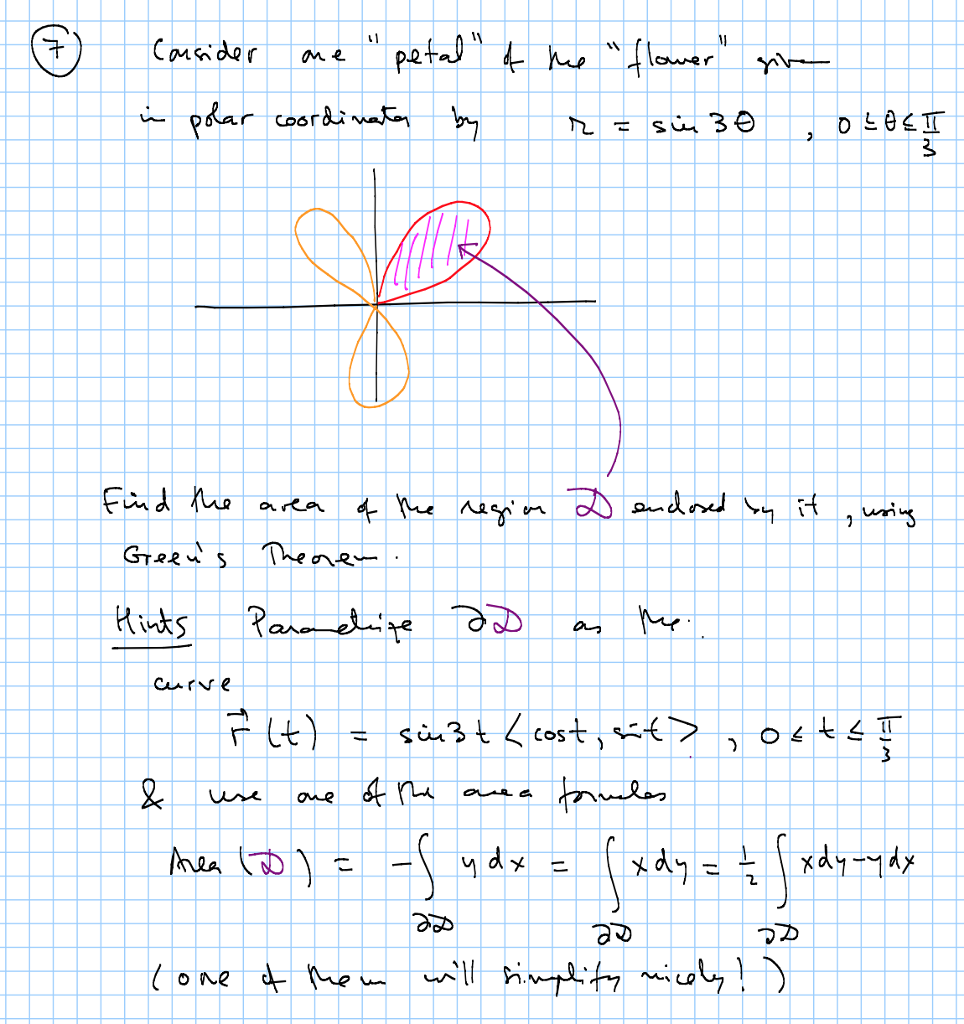 7 Consider one "petal" of the "flower" given
in polar coordinates by r = sin 3θ , 0 ≤ θ ≤ π/3
Find the area of the region D enclosed by it, using
Green's Theorem.
Hints Parametrize ∂D as the
curve
r⃗(t) = sin3t <cost, sint>, 0 ≤ t ≤ π/3
& use one of the area formulas
Area (D) = -∫_∂D y dx = ∫_∂D x dy = 1/2 ∫_∂D xdy-ydx
(one of them will simplify nicely!)